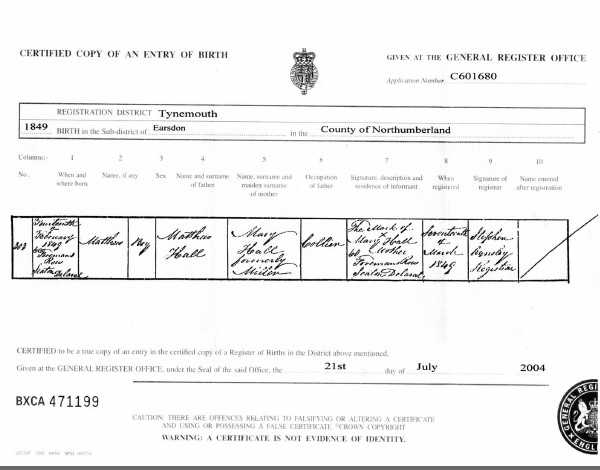 CERTIFIED COPY OF AN ENTRY OF BIRTH
GIVEN AT THE GENERAL REGISTER OFFICE
Application Number C601680
REGISTRATION DISTRICT Tynemouth
1849 BIRTH in the Sub-district of Earsdon in the County of Northumberland
Columns:- 1 2 3 4 5 6 7 8 9 10
No. When and where born Name, if any Sex Name and surname of father Name, surname and maiden surname of mother Occupation of father Signature, description and residence of informant When registered Signature of registrar Name entered after registration
Fourteenth
of
February
1849
60
Foremans
Row
Seaton Delaval
Matthew
Boy
Matthew
Hall
Mary
Hall
formerly
Collier
The Mark of
X
Mary Hall
Mother
60
Foremans Row
Seaton Delaval
Seventeenth
of
March
1849
Stephen
Registrar
CERTIFIED to be a true copy of an entry in the certified copy of a Register of Births in the District above mentioned.
Given at the GENERAL REGISTER OFFICE, under the Seal of the said Office, the 21st day of July 2004
BXCA 471199
CAUTION: THERE ARE OFFENCES RELATING TO FALSIFYING OR ALTERING A CERTIFICATE
AND USING OR POSSESSING A FALSE CERTIFICATE ©CROWN COPYRIGHT
WARNING: A CERTIFICATE IS NOT EVIDENCE OF IDENTITY.